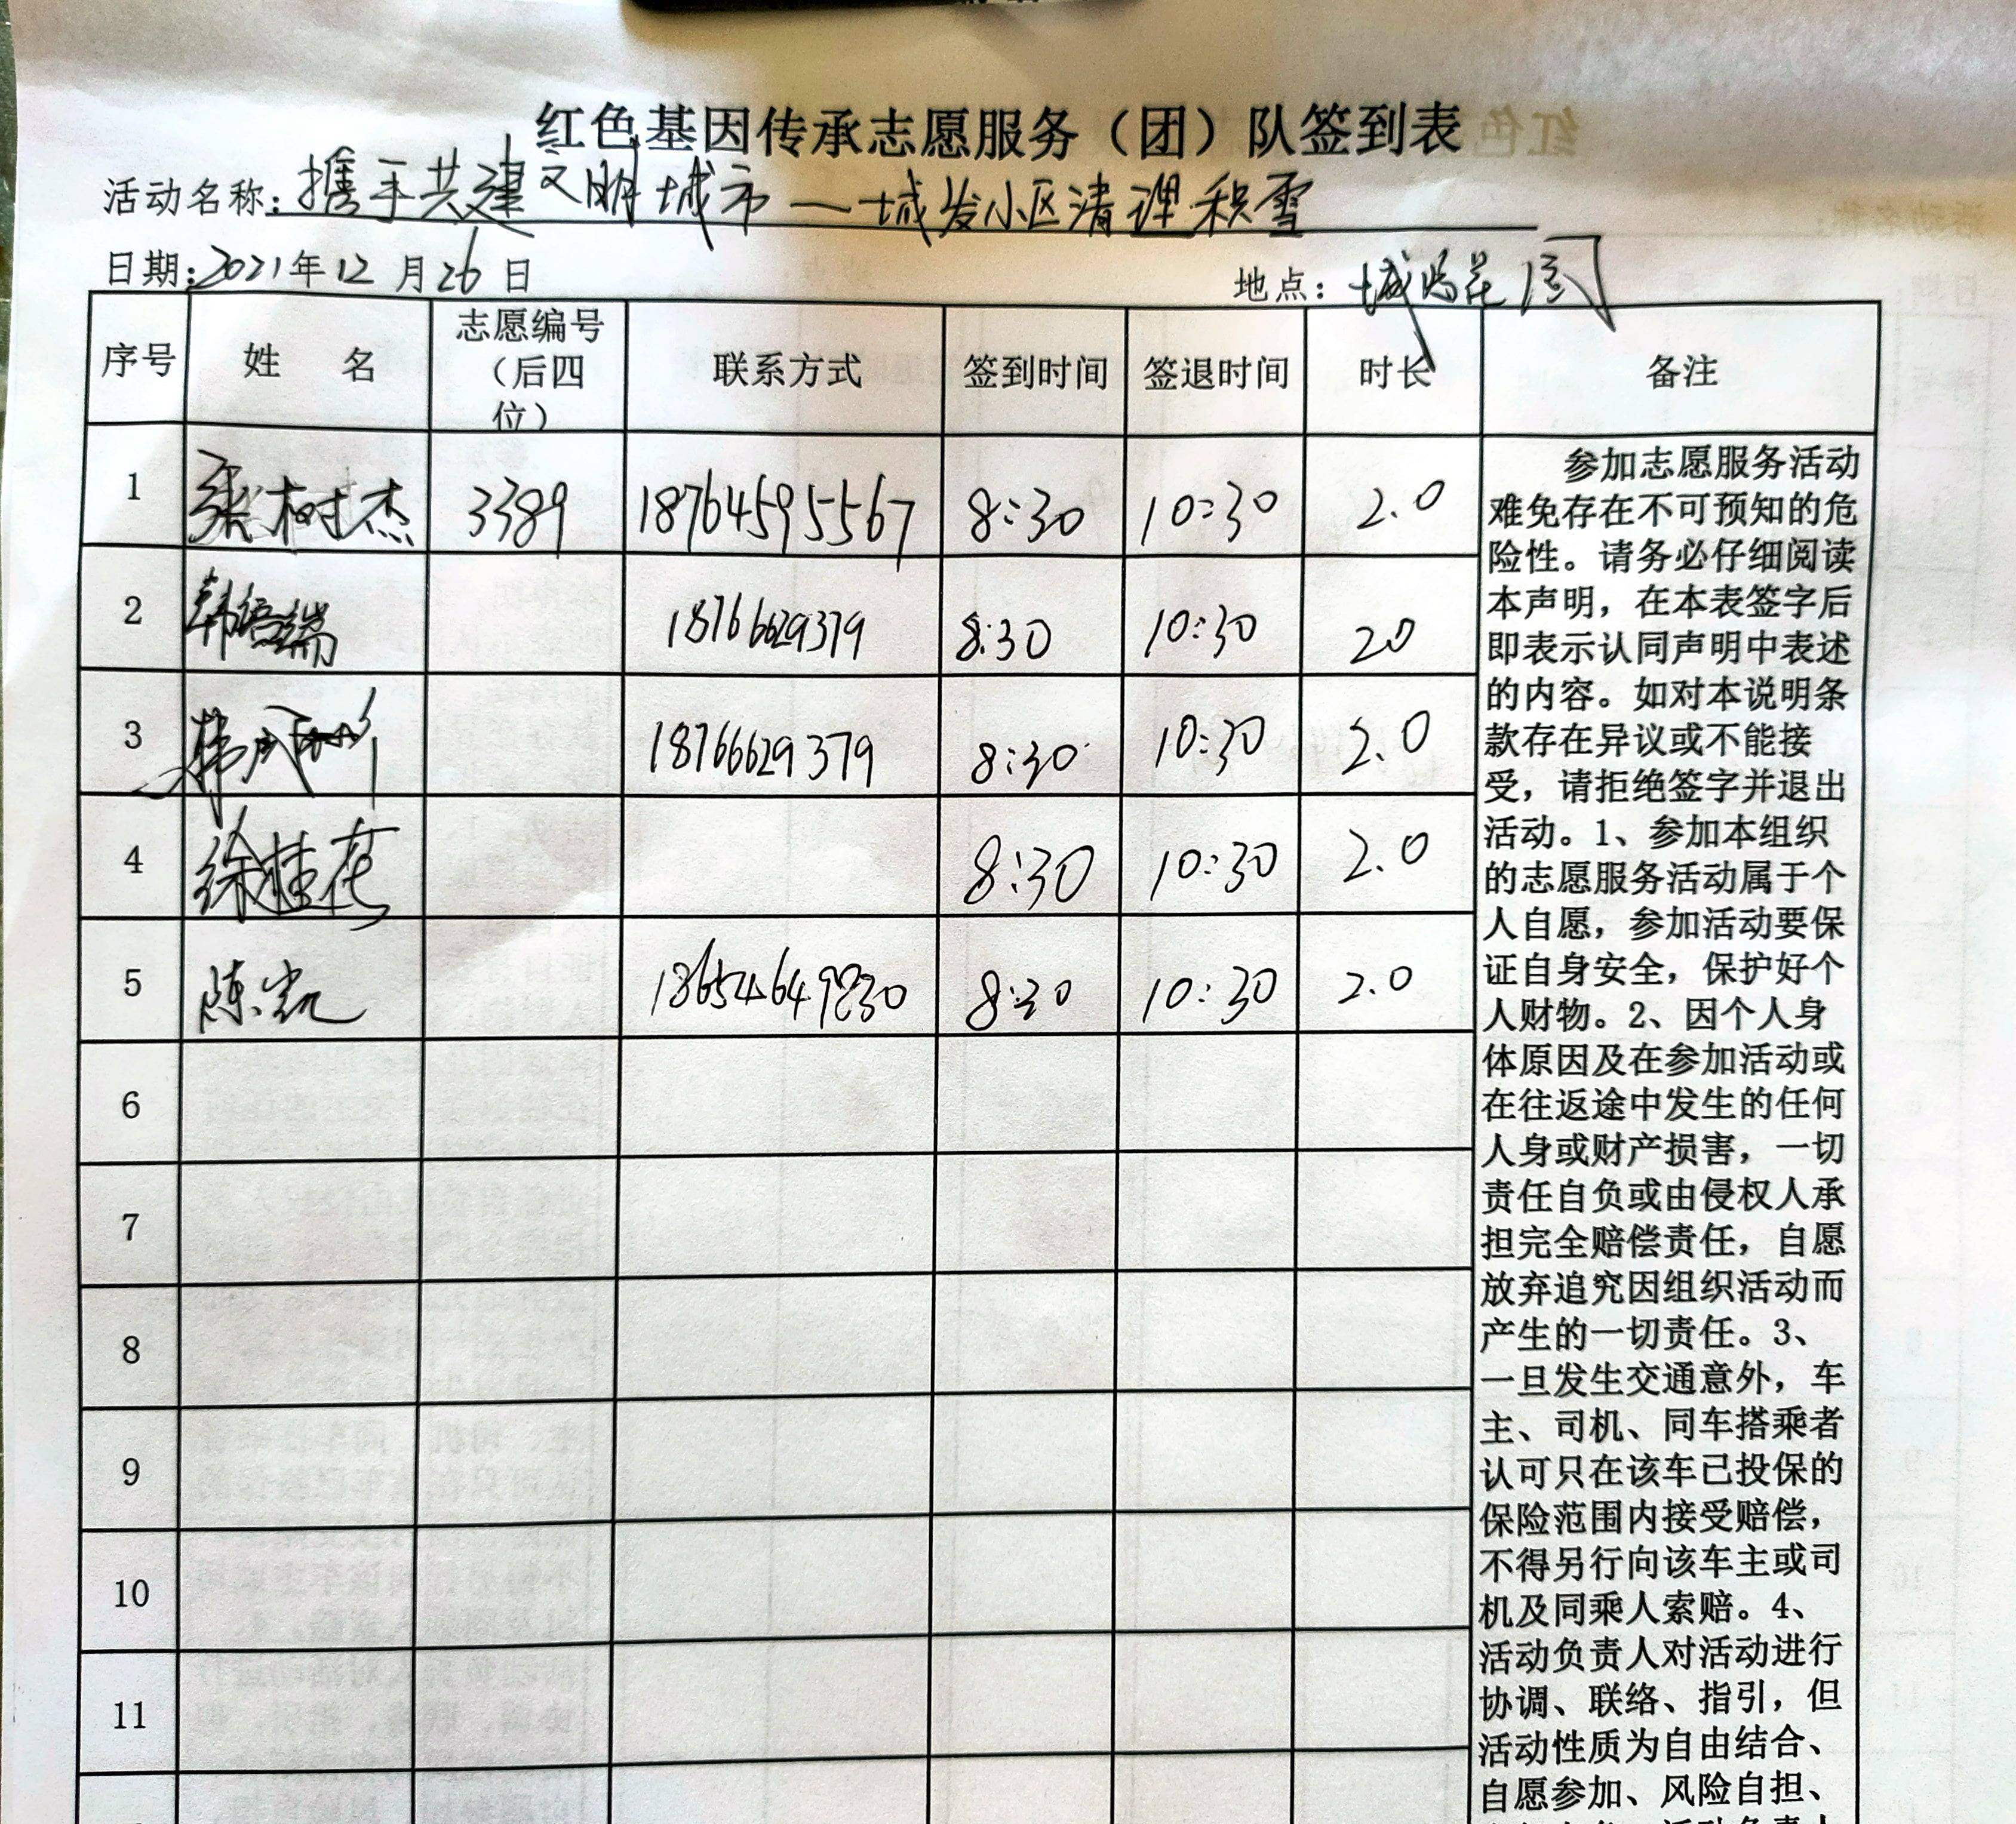 红色基因传承志愿服务（团）队签到表
活动名称：携手共建文明城市——城发小区清理积雪
日期：2021年12月26日 地点：城 花园
序号 姓 名 志愿编号（后四位） 联系方式 签到时间 签退时间 时长 备注
1 张树杰 3389 18764595567 8:30 10:30 2.0
2 韩 18766629379 8:30 10:30 20
3 韩 18766629379 8:30 10:30 2.0
4 徐桂花 8:30 10:30 2.0
5 陈凯 18654649830 8:30 10:30 2.0
6
7
8
9
10
11
参加志愿服务活动
难免存在不可预知的危
险性。请务必仔细阅读
本声明，在本表签字后
即表示认同声明中表述
的内容。如对本说明条
款存在异议或不能接
受，请拒绝签字并退出
活动。1、参加本组织
的志愿服务活动属于个
人自愿，参加活动要保
证自身安全，保护好个
人财物。2、因个人身
体原因及在参加活动或
在往返途中发生的任何
人身或财产损害，一切
责任自负或由侵权人承
担完全赔偿责任，自愿
放弃追究因组织活动而
产生的一切责任。3、
一旦发生交通意外，车
主、司机、同车搭乘者
认可只在该车已投保的
保险范围内接受赔偿，
不得另行向该车主或司
机及同乘人索赔。4、
活动负责人对活动进行
协调、联络、指引，但
活动性质为自由结合、
自愿参加、风险自担、